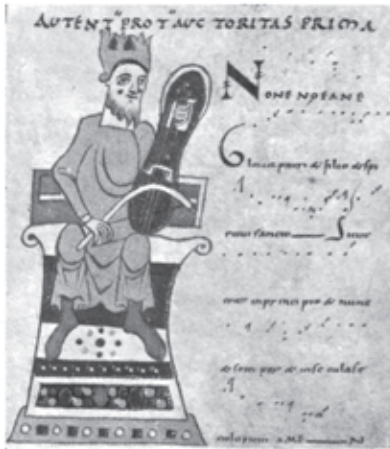 AUTENTꝰ PROTꝰ AUC TORITAS PRIMA
NONENOEANE
Gloria patri & filio & spi
ritui sancto Sicut
erat in principio & nunc
& semper & in